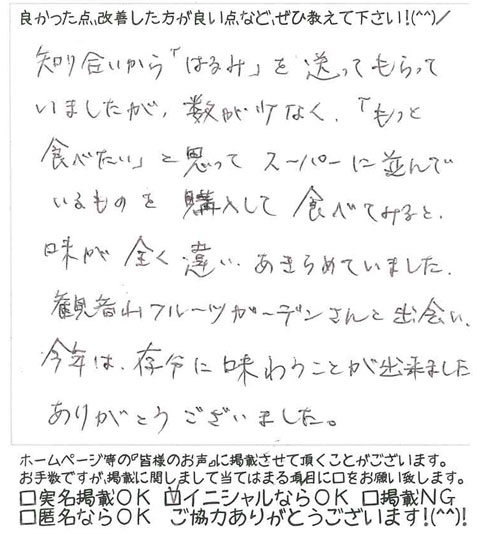 良かった点、改善した方が良い点など、ぜひ教えて下さい!(^^)/
知り合いから「はるみ」を送ってもらって
いましたが、数が少なく、「もっと
食べたい」と思ってスーパーに並んで
いるものを購入して食べてみると、
味が全く違い、あきらめていました。
観音山フルーツガーデンさんと出会い、
今年は、存分に味わうことが出来ました
ありがとうございました。
ホームページ等の『皆様のお声』に掲載させて頂くことがございます。
お手数ですが、掲載に関しまして当てはまる項目に☐をお願い致します。
☐実名掲載OK ☑イニシャルならOK ☐掲載NG
☐匿名ならOK ご協力ありがとうございます!(^^)!